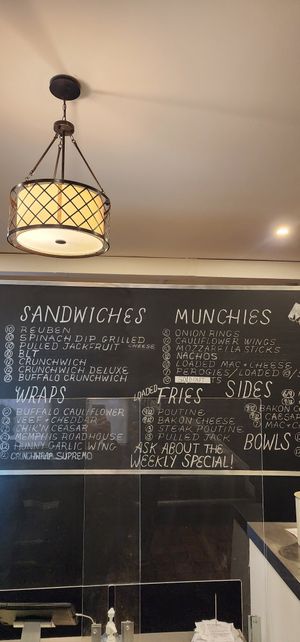 SANDWICHES
REUBEN
SPINACH DIP GRILLED CHEESE
PULLED JACKFRUIT
BLT
CRUNCHWICH
CRUNCHWICH DELUXE
BUFFALO CRUNCHWICH
MUNCHIES
ONION RINGS
CAULIFLOWER WINGS
MOZZARELLA STICKS
NACHOS
LOADED MAC & CHEESE
PEROGIES/LOADED
WRAPS
BUFFALO CAULIFLOWER
VEEF & CHEDDAR
CHIK'N CEASAR
MEMPHIS ROADHOUSE
HUNNY GARLIC WING
CRUNCHWRAP SUPREMO
LOADED FRIES
POUTINE
BAKON CHEESE
STEAK POUTINE
PULLED JACK
ASK ABOUT THE
WEEKLY SPECIAL!
SIDES
BAKON
CAESAR
MAC &
BOWLS